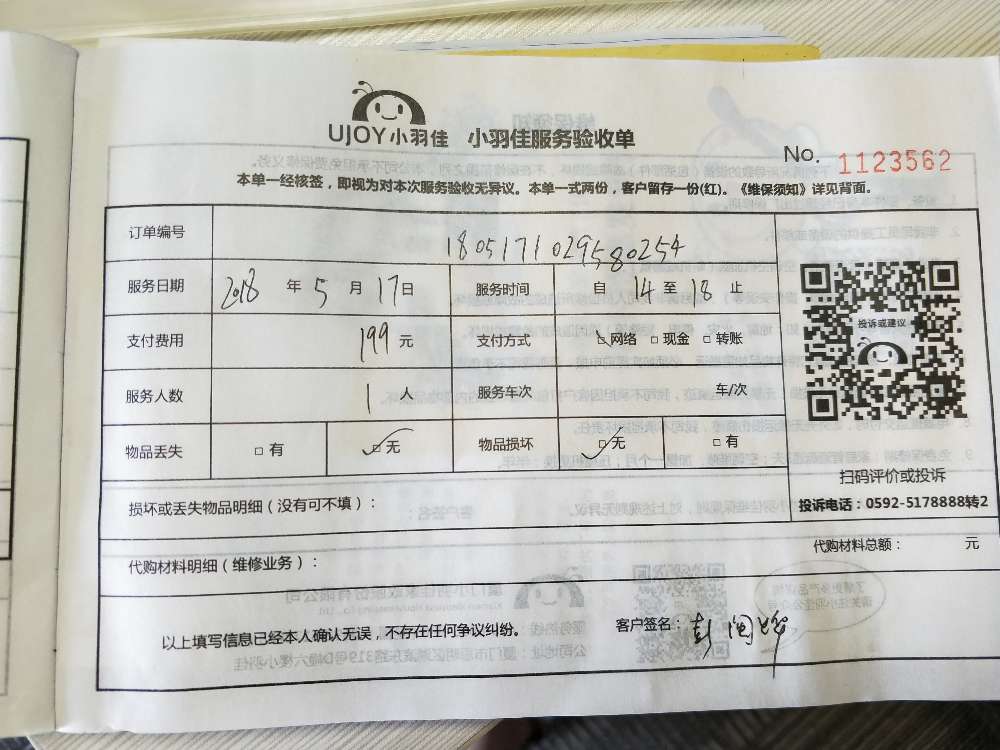 UJOY小羽佳 小羽佳服务验收单
No. 1123562
本单一经核签，即视为对本次服务验收无异议。本单一式两份，客户留存一份(红)。《维保须知》详见背面。
订单编号 180517102958 0254
服务日期 2018 年 5 月 17 日 服务时间 自 14 至 18 止
支付费用 199 元 支付方式 ☑网络 □现金 □转账
服务人数 1 人 服务车次 车/次
物品丢失 □有 ☑无 物品损坏 ☑无 □有
投诉或建议
扫码评价或投诉
投诉电话：0592-5178888转2
损坏或丢失物品明细（没有可不填）：
代购材料明细（维修业务）： 代购材料总额： 元
以上填写信息已经本人确认无误，不存在任何争议纠纷。 客户签名：彭